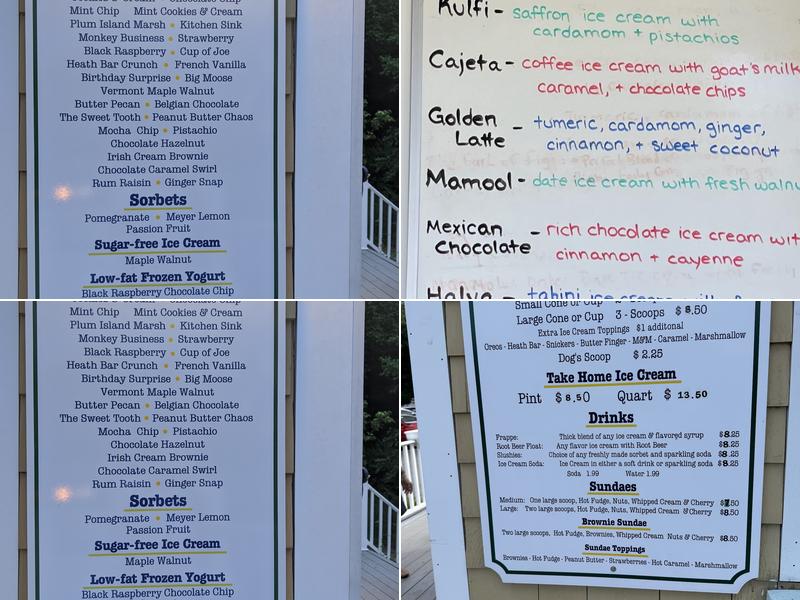 Mint Chip Mint Cookies & Cream
Plum Island Marsh • Kitchen Sink
Monkey Business • Strawberry
Black Raspberry • Cup of Joe
Heath Bar Crunch • French Vanilla
Birthday Surprise • Big Moose
Vermont Maple Walnut
Butter Pecan • Belgian Chocolate
The Sweet Tooth • Peanut Butter Chaos
Mocha Chip • Pistachio
Chocolate Hazelnut
Irish Cream Brownie
Chocolate Caramel Swirl
Rum Raisin • Ginger Snap
Sorbets
Pomegranate • Meyer Lemon
Passion Fruit
Sugar-free Ice Cream
Maple Walnut
Low-fat Frozen Yogurt
Black Raspberry Chocolate Chip
Kulfi - saffron ice cream with
cardamom + pistachios
Cajeta - coffee ice cream with goat's milk
caramel, + chocolate chips
Golden Latte - tumeric, cardamom, ginger,
cinnamon, + sweet coconut
Mamool - date ice cream with fresh walnu
Mexican Chocolate - rich chocolate ice cream wit
cinnamon + cayenne
Halva - tahini ice cream
Mint Chip Mint Cookies & Cream
Plum Island Marsh • Kitchen Sink
Monkey Business • Strawberry
Black Raspberry • Cup of Joe
Heath Bar Crunch • French Vanilla
Birthday Surprise • Big Moose
Vermont Maple Walnut
Butter Pecan • Belgian Chocolate
The Sweet Tooth • Peanut Butter Chaos
Mocha Chip • Pistachio
Chocolate Hazelnut
Irish Cream Brownie
Chocolate Caramel Swirl
Rum Raisin • Ginger Snap
Sorbets
Pomegranate • Meyer Lemon
Passion Fruit
Sugar-free Ice Cream
Maple Walnut
Low-fat Frozen Yogurt
Black Raspberry Chocolate Chip
Small Cone or Cup
Large Cone or Cup 3 - Scoops $ 8.50
Extra Ice Cream Toppings $1 additonal
Oreos - Heath Bar - Snickers - Butter Finger - M&M - Caramel - Marshmallow
Dog's Scoop $ 2.25
Take Home Ice Cream
Pint $ 8.50 Quart $ 13.50
Drinks
Frappe: Thick blend of any ice cream & flavored syrup $8.25
Root Beer Float: Any flavor ice cream with Root Beer $8.25
Slushies: Choice of any freshly made sorbet and sparkling soda $8.25
Ice Cream Soda: Ice Cream in either a soft drink or sparkling soda $8.25
Soda 1.99 Water 1.99
Sundaes
Medium: One large scoop, Hot Fudge, Nuts, Whipped Cream & Cherry $7.50
Large: Two large scoops, Hot Fudge, Nuts, Whipped Cream & Cherry $8.50
Brownie Sundae
Two large scoops, Hot Fudge, Brownies, Whipped Cream Nuts & Cherry $8.50
Sundae Toppings
Brownies - Hot Fudge - Peanut Butter - Strawberries - Hot Caramel - Marshmallow